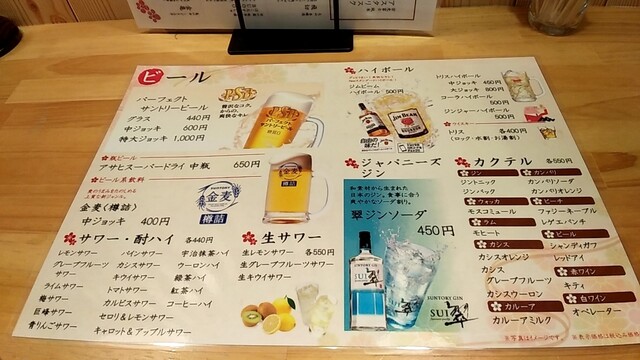 ビール
パーフェクト
サントリービール
グラス 440円
中ジョッキ 600円
特大ジョッキ 1,000円
瓶ビール
アサヒスーパードライ 中瓶 650円
ビール系飲料
金麦(樽詰)
中ジョッキ 400円
金麦
樽詰
サワー・酎ハイ 各440円
レモンサワー
グレープフルーツ
サワー
ライムサワー
梅サワー
巨峰サワー
青りんごサワー
パインサワー
カシスサワー
キウイサワー
トマトサワー
カルピスサワー
セロリ&レモンサワー
キャロット&アップルサワー
宇治抹茶ハイ
ウーロンハイ
緑茶ハイ
紅茶ハイ
コーヒーハイ
生サワー 各550円
生レモンサワー
生グレープフルーツサワー
生キウイサワー
ハイボール
ジムビーム
ハイボール 500円
JIM BEAM
トリスハイボール
中ジョッキ 450円
大ジョッキ 800円
コークハイボール
500円
ジンジャーハイボール
500円
トリス 各400円
(ロック・水割・お湯割)
ジャパニーズ
ジン
和素材から生まれた
日本のジン。食事に合う
爽やかなソーダ割り。
翠ジンソーダ
450円
SUNTORY GIN
SUI 翠
カクテル 各550円
ジン
ジントニック
ジンバック
ウォッカ
モスコミュール
ラム
モヒート
カシス
カシスオレンジ
カシス
グレープフルーツ
カシスウーロン
カルーア
カルーアミルク
カンパリ
カンパリソーダ
カンパリオレンジ
ピーチ
ファジーネーブル
レゲエパンチ
ビール
シャンディガフ
レッドアイ
赤ワイン
キティ
白ワイン
オペレーター
※写真はイメージです。 ※表示価格は税込み価格